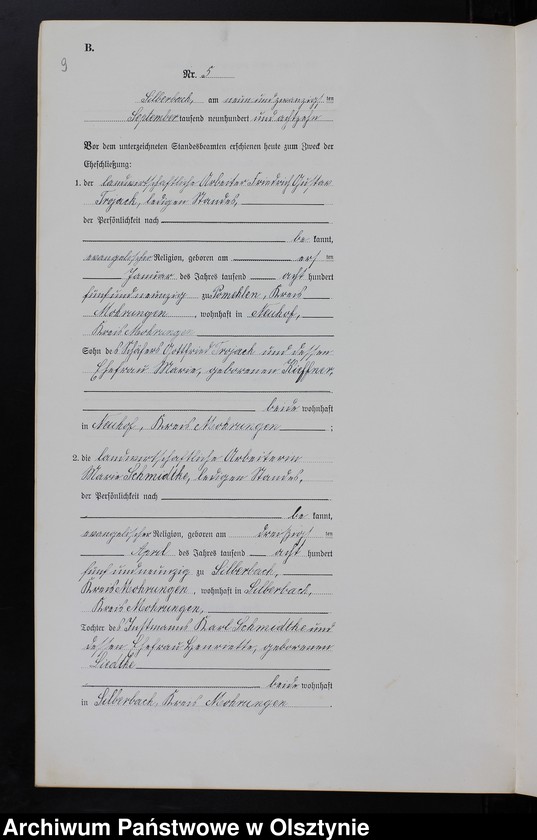 B.
9
Nr. 5
Silberbach, am neun und zwanzigsten
September tausend neunhundert und achtzehn
Vor dem unterzeichneten Standesbeamten erschienen heute zum Zweck der
Eheschließung:
1. der landwirtschaftliche Arbeiter Friedrich Gustav
Trojach, ledigen Standes,
der Persönlichkeit nach
be kannt,
evangelischer Religion, geboren am ersten
Januar des Jahres tausend acht hundert
fünf und neunzig zu Pomehlen, Kreis
Mohrungen, wohnhaft in Neuhof,
Kreis Mohrungen
Sohn des Schäfers Gottfried Trojach und dessen
Ehefrau Marie, geborenen
beide wohnhaft
in Neuhof, Kreis Mohrungen ;
2. die landwirtschaftliche Arbeiterin
Marie Schmidtke, ledigen Standes,
der Persönlichkeit nach
be kannt,
evangelischer Religion, geboren am dreißigsten
April des Jahres tausend acht hundert
fünf und neunzig zu Silberbach,
Kreis Mohrungen, wohnhaft in Silberbach,
Kreis Mohrungen,
Tochter des Instmanns Karl Schmidtke und
dessen Ehefrau Henriette, geborenen
Liedtke
beide wohnhaft
in Silberbach, Kreis Mohrungen .
Archiwum Państwowe w Olsztynie